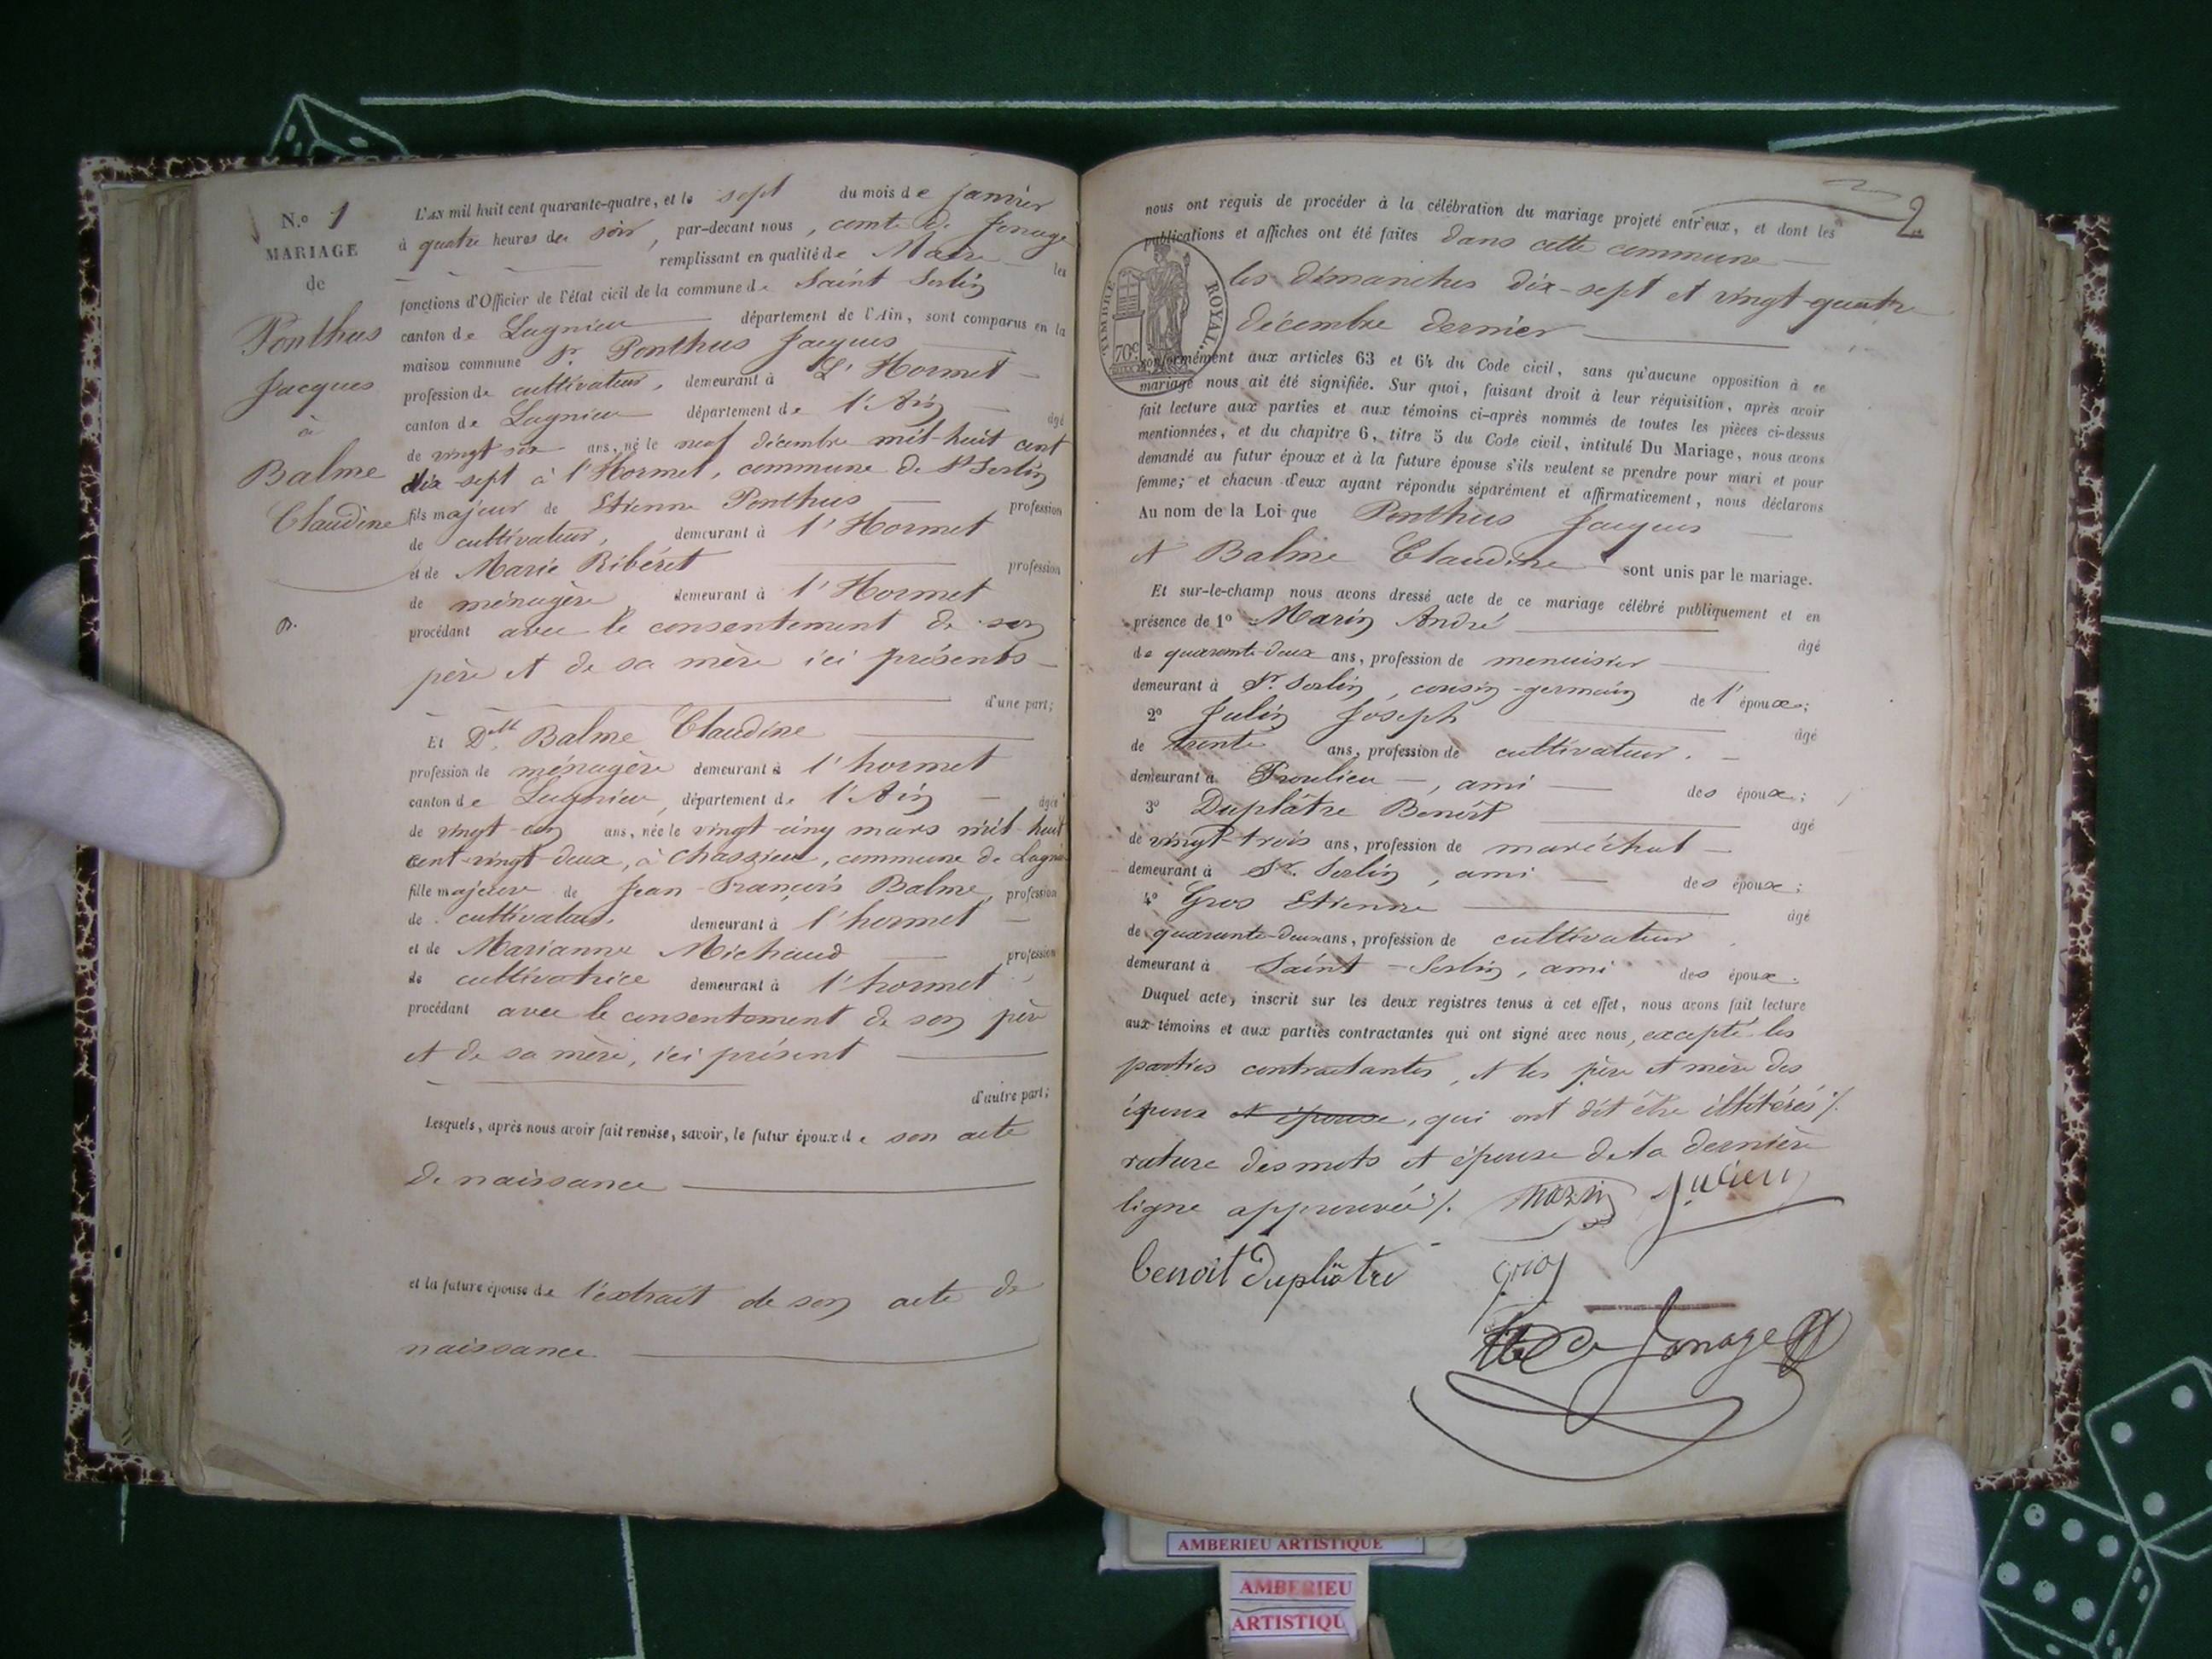 N.º 1
MARIAGE
de
Ponthus
Jacques
à
Balme
Claudine
L'AN mil huit cent quarante-quatre, et le sept du mois de janvier
à quatre heures du soir, par-devant nous, comte De Jonage
remplissant en qualité de Maire les
fonctions d'Officier de l'état civil de la commune de Saint Sorlin
canton de Lagnieu département de l'Ain, sont comparus en la
maison commune Sr. Ponthus Jacques
profession de cultivateur, demeurant à L'Hormet
canton de Lagnieu département de l'Ain âgé
de vingt six ans, né le neuf décembre mil-huit cent
dix-sept à l'Hormet, commune de St Sorlin
fils majeur de Etienne Ponthus profession
de cultivateur, demeurant à l'Hormet
et de Marie Ribéret profession
de ménagère demeurant à l'Hormet
procédant avec le consentement de son
père et de sa mère ici présents
d'une part;
Et Dlle Balme Claudine
profession de ménagère demeurant à l'hormet
canton de Lagnieu, département de l'Ain âgée
de vingt-un ans, née le vingt-cinq mars mil-huit
cent-vingt-deux, à Chassieu, commune de Lagnieu
fille majeure de Jean-François Balme, profession
de cultivateur, demeurant à l'hormet
et de Marianne Michaud profession
de cultivatrice demeurant à l'hormet
procédant avec le consentement de son père
et de sa mère, ici présent
d'autre part;
Lesquels, après nous avoir fait remise, savoir, le futur époux de son acte
De naissance
et la future épouse de l'extrait de son acte de
naissance
2
nous ont requis de procéder à la célébration du mariage projeté entr'eux, et dont les
publications et affiches ont été faites dans cette commune
les dimanches dix-sept et vingt-quatre
décembre dernier
TIMBRE ROYAL.
70c
conformément aux articles 63 et 64 du Code civil, sans qu'aucune opposition à ce
mariage nous ait été signifiée. Sur quoi, faisant droit à leur réquisition, après avoir
fait lecture aux parties et aux témoins ci-après nommés de toutes les pièces ci-dessus
mentionnées, et du chapitre 6, titre 5 du Code civil, intitulé Du Mariage, nous avons
demandé au futur époux et à la future épouse s'ils veulent se prendre pour mari et pour
femme; et chacun d'eux ayant répondu séparément et affirmativement, nous déclarons
Au nom de la Loi que Ponthus Jacques
et Balme Claudine sont unis par le mariage.
Et sur-le-champ nous avons dressé acte de ce mariage célébré publiquement et en
présence de 1º Marin André âgé
de quarante-deux ans, profession de menuisier
demeurant à St. Sorlin, cousin-germain de l'époux;
2º Julin Joseph âgé
de trente ans, profession de cultivateur.
demeurant à Proulieu, ami des époux;
3º Duplâtre Benoît âgé
de vingt-trois ans, profession de maréchal
demeurant à St. Sorlin, ami des époux;
4º Gros Etienne âgé
de quarante-deux ans, profession de cultivateur
demeurant à Saint-Sorlin, ami des époux.
Duquel acte, inscrit sur les deux registres tenus à cet effet, nous avons fait lecture
aux témoins et aux parties contractantes qui ont signé avec nous, excepté les
parties contractantes, et les père et mère des
époux et épouse, qui ont dit être illitérés %.
rature des mots et épouse de la dernière
ligne approuvée %. Marin Julien
benoit Duplâtre gros
De Jonage
AMBERIEU ARTISTIQUE
AMBERIEU
ARTISTIQU